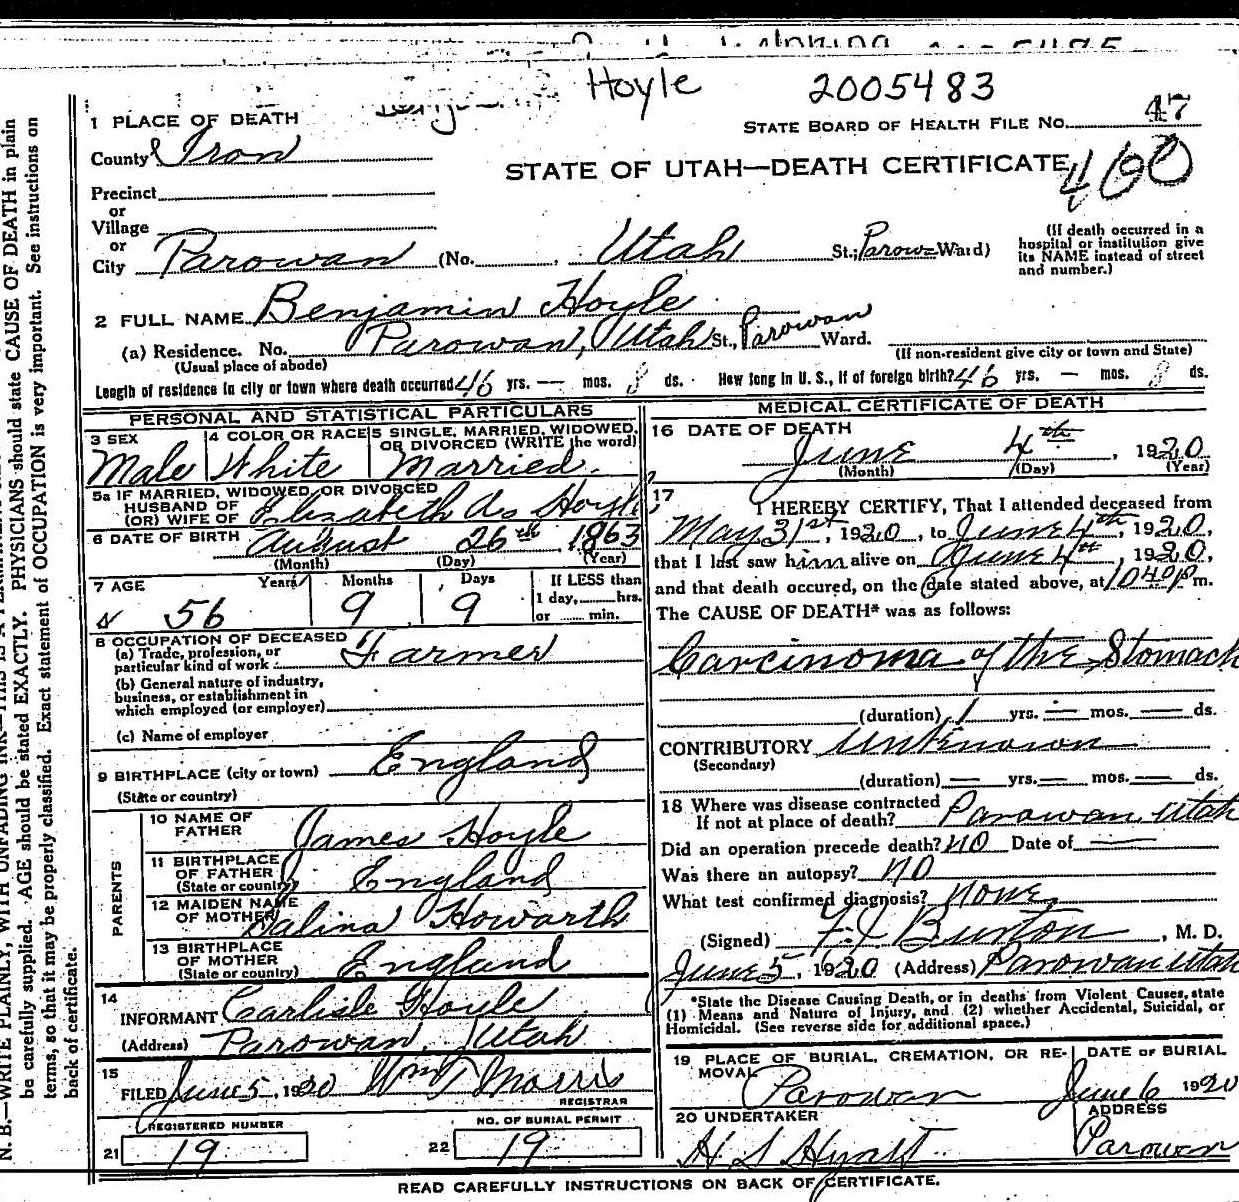 Hoyle 2005483
1 PLACE OF DEATH
STATE BOARD OF HEALTH File No. 47
County Iron
STATE OF UTAH—DEATH CERTIFICATE
460
Precinct
or
Village
or
City Parowan (No. , Utah St.; Parow= Ward)
(If death occurred in a
hospital or institution give
its NAME instead of street
and number.)
2 FULL NAME Benjamin Hoyle
(a) Residence. No. Parowan, Utah St., Parowan Ward.
(Usual place of abode)
(If non-resident give city or town and State)
Length of residence in city or town where death occurred 46 yrs. — mos. 8 ds. How long in U. S., if of foreign birth? 46 yrs. — mos. 8 ds.
PERSONAL AND STATISTICAL PARTICULARS
3 SEX
Male
4 COLOR OR RACE
White
5 SINGLE, MARRIED, WIDOWED,
OR DIVORCED (WRITE the word)
Married.
5a IF MARRIED, WIDOWED, OR DIVORCED
HUSBAND OF
(OR) WIFE OF Elizabeth A. Hoyle
6 DATE OF BIRTH August 26th, 1863
(Month) (Day) (Year)
7 AGE Years Months Days
56 9 9
If LESS than
1 day, ...... hrs.
or ...... min.
8 OCCUPATION OF DECEASED
(a) Trade, profession, or
particular kind of work Farmer
(b) General nature of industry,
business, or establishment in
which employed (or employer)
(c) Name of employer
9 BIRTHPLACE (city or town) England
(State or country)
PARENTS
10 NAME OF
FATHER James Hoyle
11 BIRTHPLACE
OF FATHER
(State or country) England
12 MAIDEN NAME
OF MOTHER Salina Howarth
13 BIRTHPLACE
OF MOTHER
(State or country) England
14
INFORMANT Carlisle Hoyle
(Address) Parowan, Utah
15
FILED June 5, 1920 Wm T Morris
REGISTRAR
REGISTERED NUMBER
21 19
NO. OF BURIAL PERMIT
22 19
MEDICAL CERTIFICATE OF DEATH
16 DATE OF DEATH
June 4th, 1920
(Month) (Day) (Year)
17
I HEREBY CERTIFY, That I attended deceased from
May 31st, 1920, to June 4th, 1920,
that I last saw him alive on June 4th, 1920,
and that death occured, on the date stated above, at 10 40 P m.
The CAUSE OF DEATH* was as follows:
Carcinoma of the Stomach
(duration) 1 yrs. — mos. — ds.
CONTRIBUTORY Unknown
(Secondary)
(duration) — yrs. — mos. — ds.
18 Where was disease contracted
If not at place of death? Parowan Utah
Did an operation precede death? NO Date of —
Was there an autopsy? NO
What test confirmed diagnosis? None
(Signed) Burton, M. D.
June 5, 1920 (Address) Parowan Utah
*State the Disease Causing Death, or in deaths from Violent Causes, state
(1) Means and Nature of Injury, and (2) whether Accidental, Suicidal, or
Homicidal. (See reverse side for additional space.)
19 PLACE OF BURIAL, CREMATION, OR RE-
MOVAL Parowan
DATE OF BURIAL
June 6 1920
20 UNDERTAKER
H S Hyatt
ADDRESS
Parowan
READ CAREFULLY INSTRUCTIONS ON BACK OF CERTIFICATE.
be carefully supplied. AGE should be stated EXACTLY. PHYSICIANS should state CAUSE OF DEATH in plain
terms, so that it may be properly classified. Exact statement of OCCUPATION is very important. See instructions on
back of certificate.